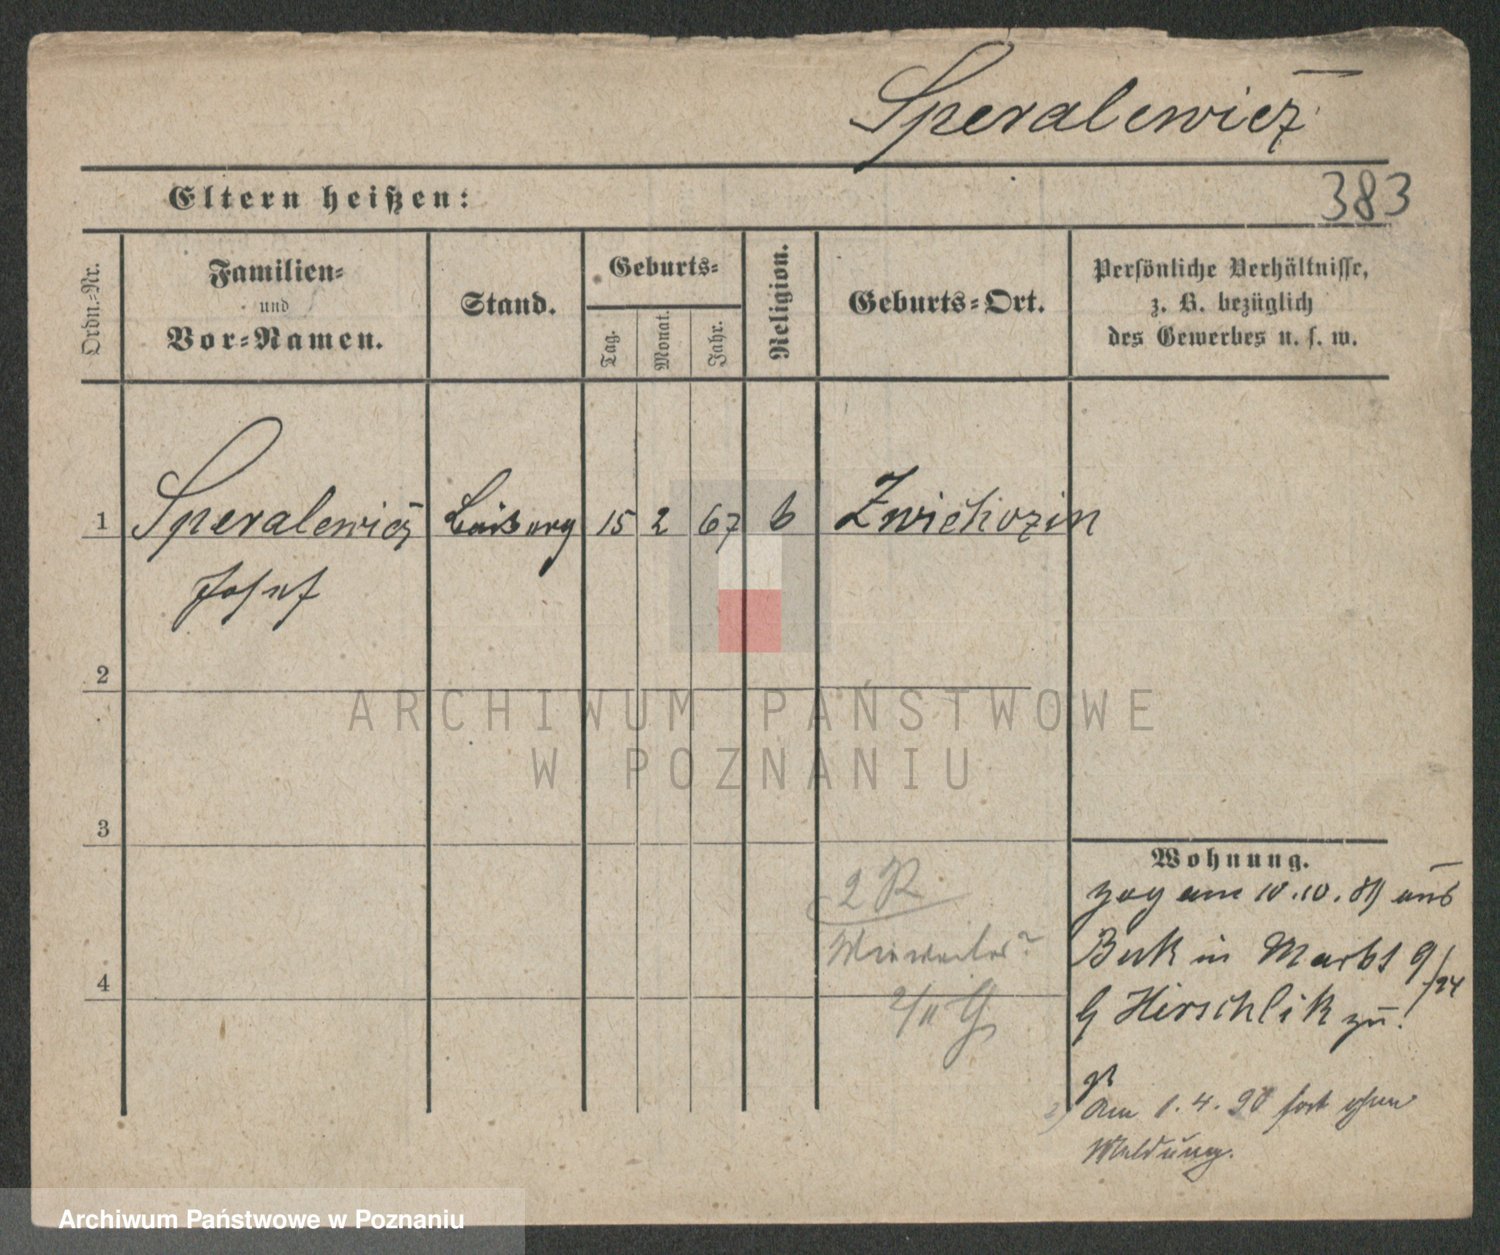 Speralewicz
Eltern heißen:
383
Ordn.=Nr.
Familien=
und
Vor=Namen.
Stand.
Geburts=
Tag.
Monat.
Jahr.
Religion.
Geburts=Ort.
Persönliche Verhältnisse,
z. B. bezüglich
des Gewerbes u. s. w.
1
Speralewicz
Josef
15 2 67
Zwichozin
2
ARCHIWUM PAŃSTWOWE
W POZNANIU
3
Wohnung.
zog am 10.10.89 aus
Buk in Markt 9/24
G Hirschlik zu!
2 R
2/11 G
4
Am 1.4.90 fort ohne
Meldung.
Archiwum Państwowe w Poznaniu